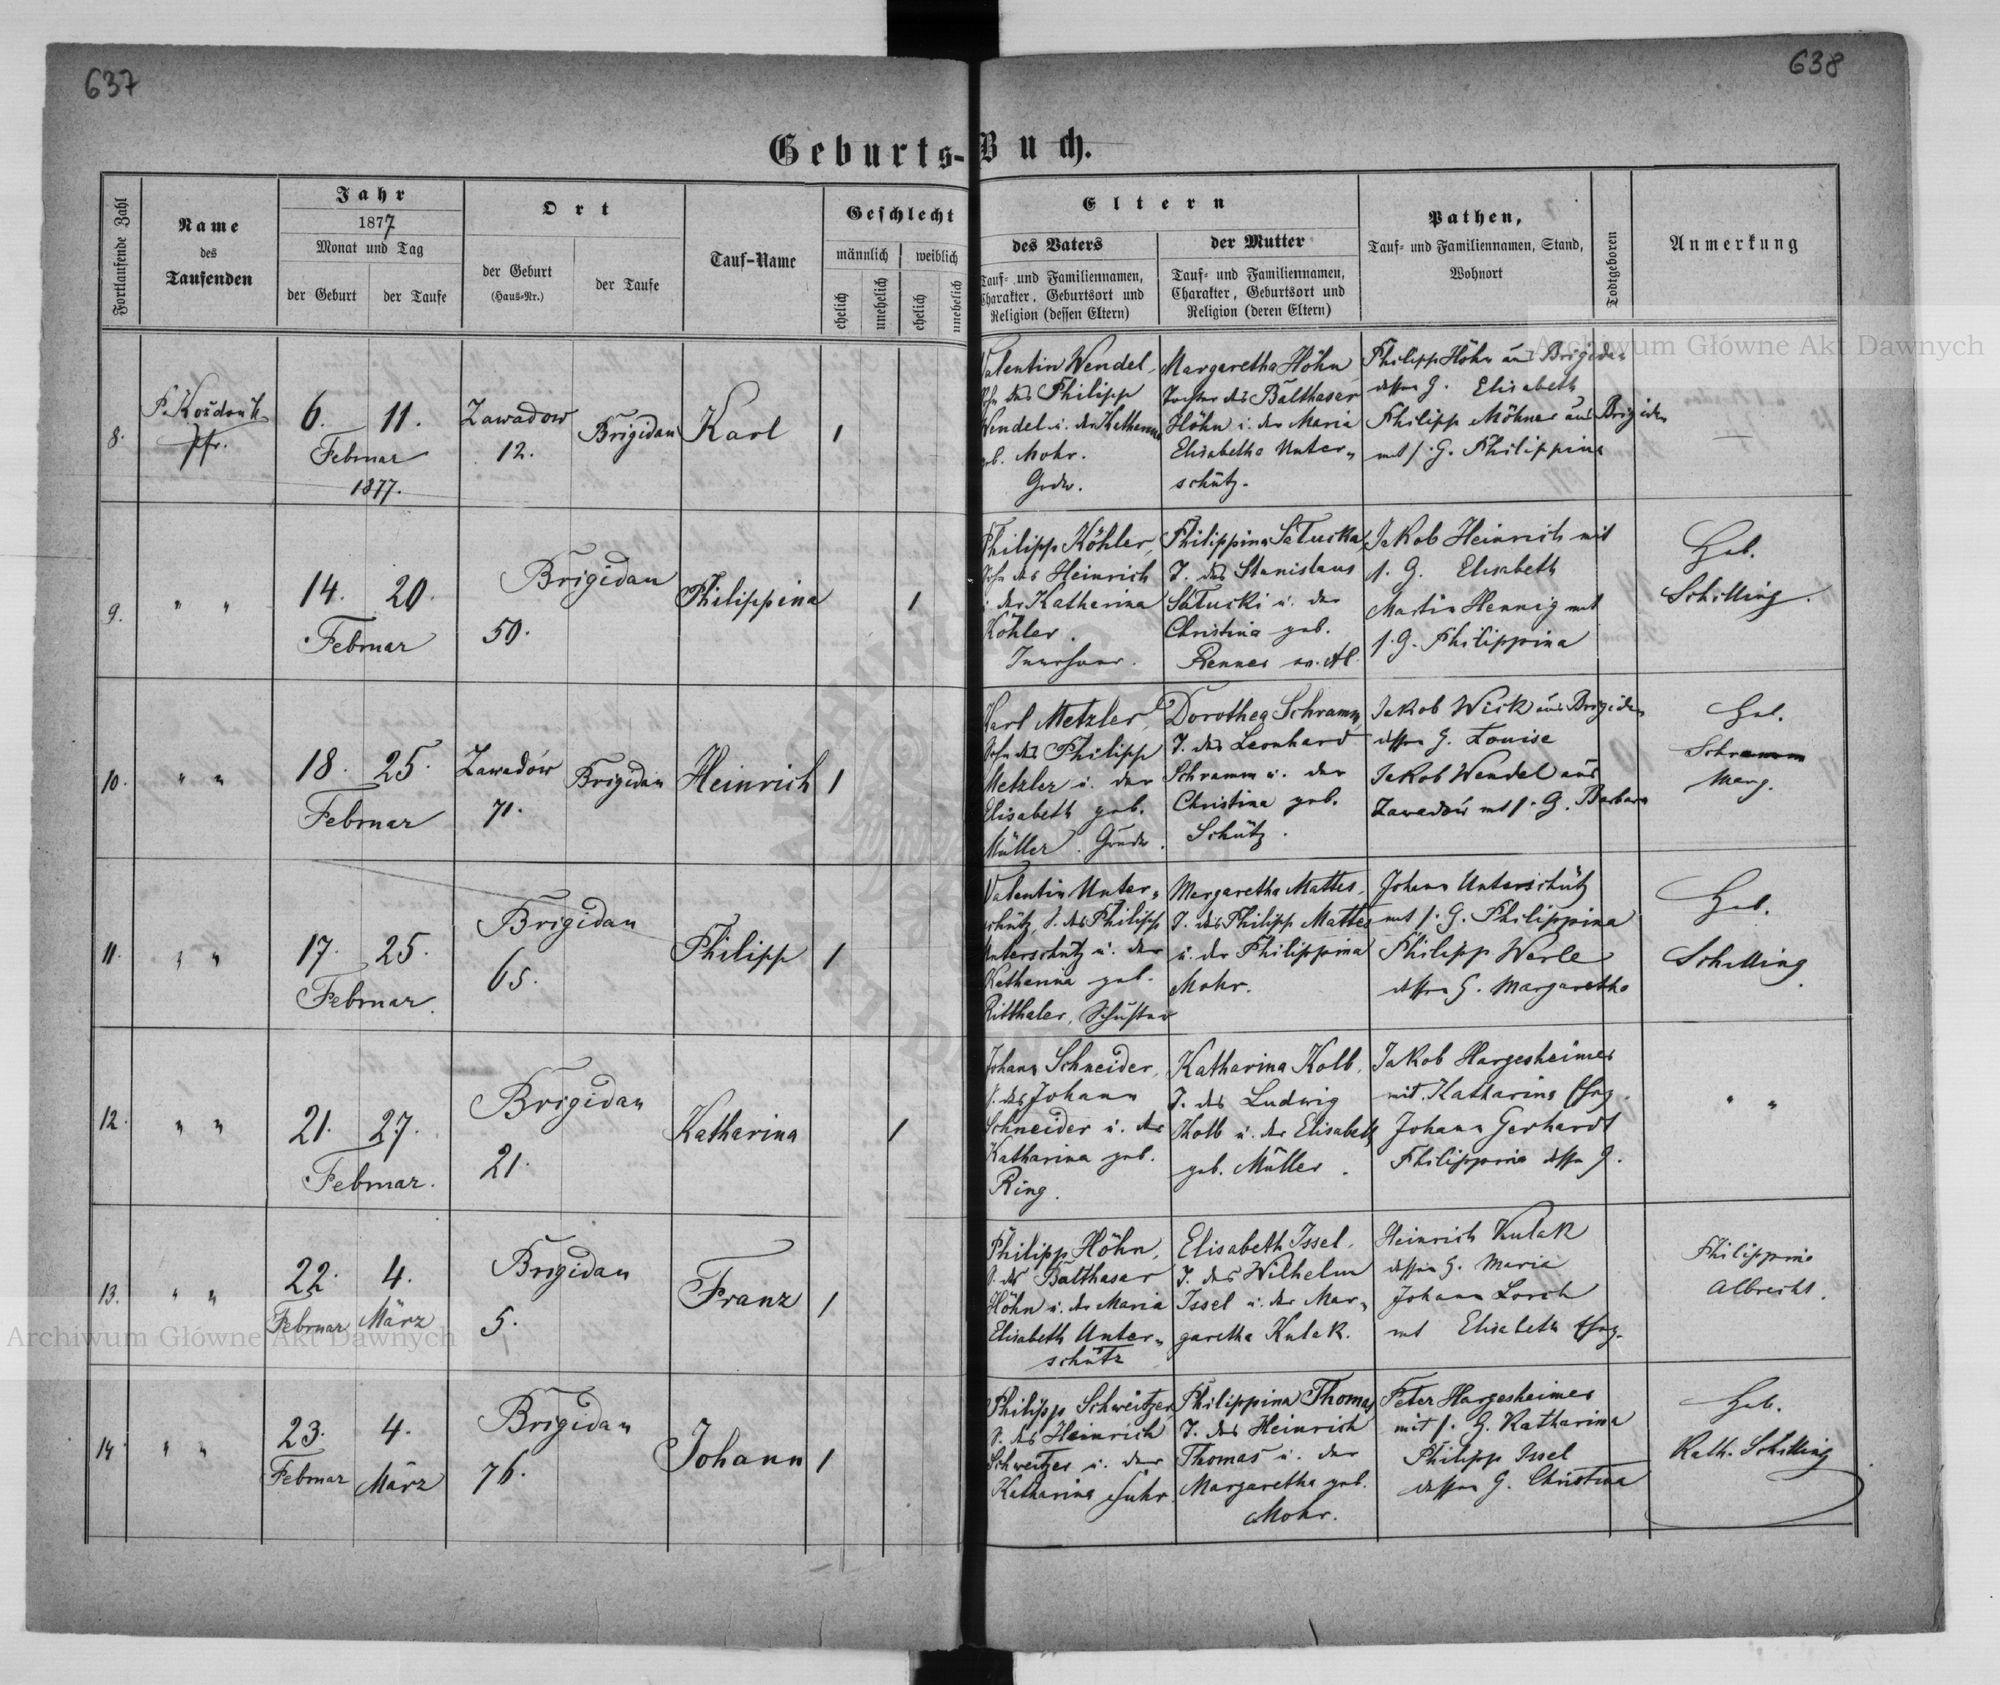 637
638
Geburts-Buch.
Fortlaufende Zahl
Name
des
Taufenden
Jahr
1877
Monat und Tag
der Geburt
der Taufe
Ort
der Geburt
(Haus-Nr.)
der Taufe
Tauf-Name
Geschlecht
männlich
weiblich
ehelich
unehelich
ehelich
unehelich
Eltern
des Vaters
Tauf- und Familiennamen,
Charakter, Geburtsort und
Religion (dessen Eltern)
der Mutter
Tauf- und Familiennamen,
Charakter, Geburtsort und
Religion (deren Eltern)
Pathen,
Tauf- und Familiennamen, Stand,
Wohnort
Todtgeboren
Anmerkung
8.
Pfr.
6. 11.
Februar
1877.
Zawadow
12.
Brigidau
Karl
1
Valentin Wendel,
Sohn des Philipp
Wendel u. der Katharina
geb. Mohr.
Grdw.
Margaretha Höhn
Tochter des Balthasar
Höhn u. der Maria
Elisabetha Unter-
schütz.
Philipp Höhn aus Brigidau
dessen G. Elisabeth
Philipp Möhner aus Brigidau
mit s. G. Philippina
—
9.
" "
14. 20.
Februar
Brigidau
50.
Philippina
1
Philipp Köhler,
Sohn des Heinrich
u. der Katharina
Köhler.
Philippina Satucka
T. des Stanislaus
Satucki u. der
Christina geb.
Renner
Jakob Heinrich mit
s. G. Elisabeth
Martin Hennig mit
s. G. Philippina
Heb.
Schilling.
10.
" "
18. 25.
Februar
Zawadów
71.
Brigidau
Heinrich
1
Karl Metzler,
Sohn des Philipp
Metzler u. der
Elisabeth geb.
Müller. Grundw.
Dorothea Schramm,
T. des Leonhard
Schramm u. der
Christina geb.
Schütz.
Jakob Wick aus Brigidau
dessen G. Louise
Jakob Wendel aus
Zawadów mit s. G. Barbara
Heb.
Schramm
Marg.
11.
" "
17. 25.
Februar.
Brigidau
65.
Philipp
1
Valentin Unter-
schütz, S. des Philipp
Unterschütz u. der
Katharina geb.
Ritthaler, Schuster
Margaretha Mattes,
T. des Philipp Mattes
u. der Philippina
Mohr.
Johann Unterschütz
mit s. G. Philippina
Philipp Werle
dessen G. Margaretha
Heb.
Schilling.
12.
" "
21. 27.
Februar.
Brigidau
21.
Katharina
1
Johann Schneider,
S. des Johann
Schneider u. der
Katharina geb.
Ring.
Katharina Kolb,
T. des Ludwig
Kolb u. der Elisabeth
geb. Müller.
Jakob Hargesheimer
mit Katharina Ehag.
Johann Gerhardt
Philippina dessen G.
" "
13.
" "
22. 4.
Februar März
Brigidau
5.
Franz
1
Philipp Höhn,
S. des Balthasar
Höhn u. der Maria
Elisabeth Unter-
schütz
Elisabeth Issel,
T. des Wilhelm
Issel u. der Mar-
garetha Kulak.
Heinrich Kulak
dessen G. Maria
Johann Lorch
mit Elisabeth Ehag.
Philippina
Albrecht.
14.
" "
23. 4.
Februar März
Brigidau
76.
Johann
1
Philipp Schweitzer,
S. des Heinrich
Schweitzer u. der
Katharina Fuhr.
Philippina Thomas
T. des Heinrich
Thomas u. der
Margaretha geb.
Mohr.
Peter Hargesheimer
mit s. G. Katharina
Philipp Issel
dessen G. Christina
Heb.
Kath. Schilling
Archiwum Główne Akt Dawnych
Archiwum Główne Akt Dawnych